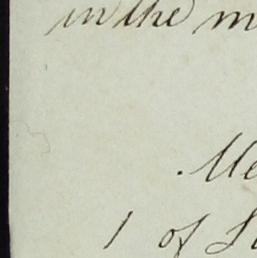 in the m
Me
1 of S